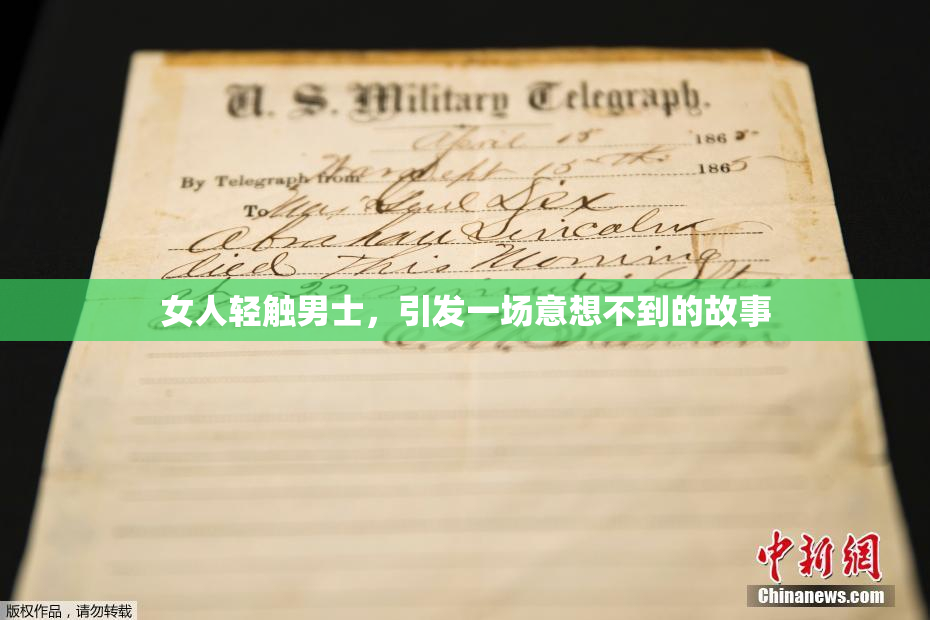 U. S. Military Telegraph.
April 15 1865
By Telegraph from War Dept 15th 1865
To Maj Genl Dix
Abraham Lincoln
died This Morning
22 minutes after
女人轻触男士，引发一场意想不到的故事
E. M. Stanton
中新网
Chinanews.com
版权作品，请勿转载